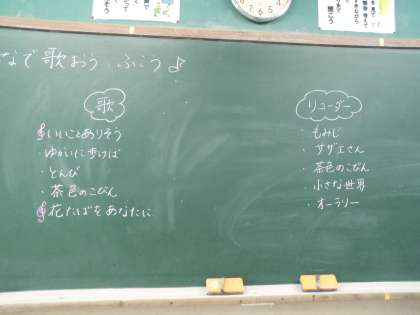 なで歌おう ふこう♪
歌
いいことありそう
・ゆかいに歩けば
・とんび
・茶色のこびん
花たばをあなたに
リコーダー
・もみじ
・サザエさん
・茶色のこびん
・小さな世界
・オーラリー